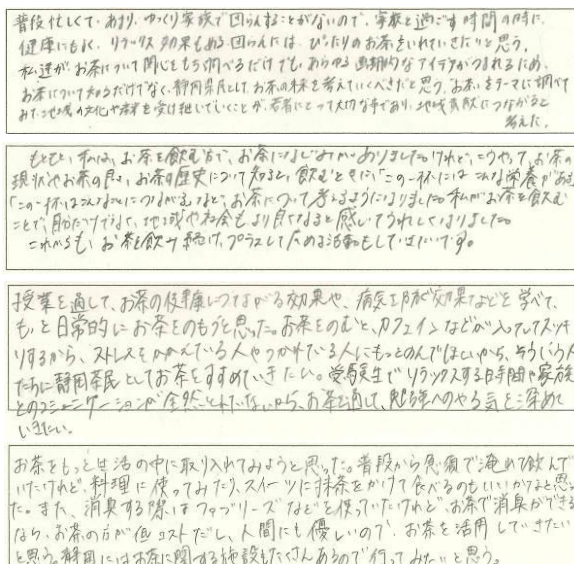 普段忙しくて、あまり、ゆっくり家族で団らんすることがないので、家族と過ごす時間の時に、
健康にもよく、リラックス効果もある団らんには、ぴったりのお茶をいれていきたいと思う。
私達が、お茶について関心をもち調べるだけでも、あらゆる画期的なアイデアがうまれるため、
お茶について知るだけでなく、静岡県民として、お茶の未来を考えていくべきだと思う。お茶をテーマに調べて
みた地域の文化や産業を受け継いでいくことが、若者にとって大切な事であり、地域貢献につながると
考えた。
もともと、私は、お茶を飲む方で、お茶になじみがありましたけれど、こうやって、お茶の
現状やお茶の良さ、お茶の歴史について知ると、飲むときに「この一杯にはこんな栄養がある」
「この一杯はこんなことにつながる」など、お茶について考えるようになりました。私がお茶を飲む
ことで、自分だけでなく、地域や社会もより良くなると感じてうれしくなりました。
これからも、お茶を飲み続け、プラスして広める活動もしていきたいです。
授業を通して、お茶の健康につながる効果や、病気予防効果などを学べて、
もっと日常的にお茶をのもうと思った。お茶をのむと、カフェインなどが入っててスッキ
リするから、ストレスをかかえている人やつかれている人にもっとのんでほしいから、そういう人
たちに静岡県民としてお茶をすすめていきたい。受験生でリラックスする時間や家族
とのコミュニケーションが全然とれていないから、お茶を通して、勉強へのやる気を深めて
いきたい。
お茶をもっと生活の中に取り入れてみようと思った。普段から急須で淹れて飲んで
いたけれど、料理に使ってみたり、スイーツに抹茶をかけて食べるのもいいかなと思っ
た。また、消臭する際はファブリーズなどを使っていたけれど、お茶で消臭ができる
なら、お茶の方が低コストだし、人間にも優しいので、お茶を活用していきたい
と思う。静岡にはお茶に関する施設もたくさんあるので行ってみたいと思う。